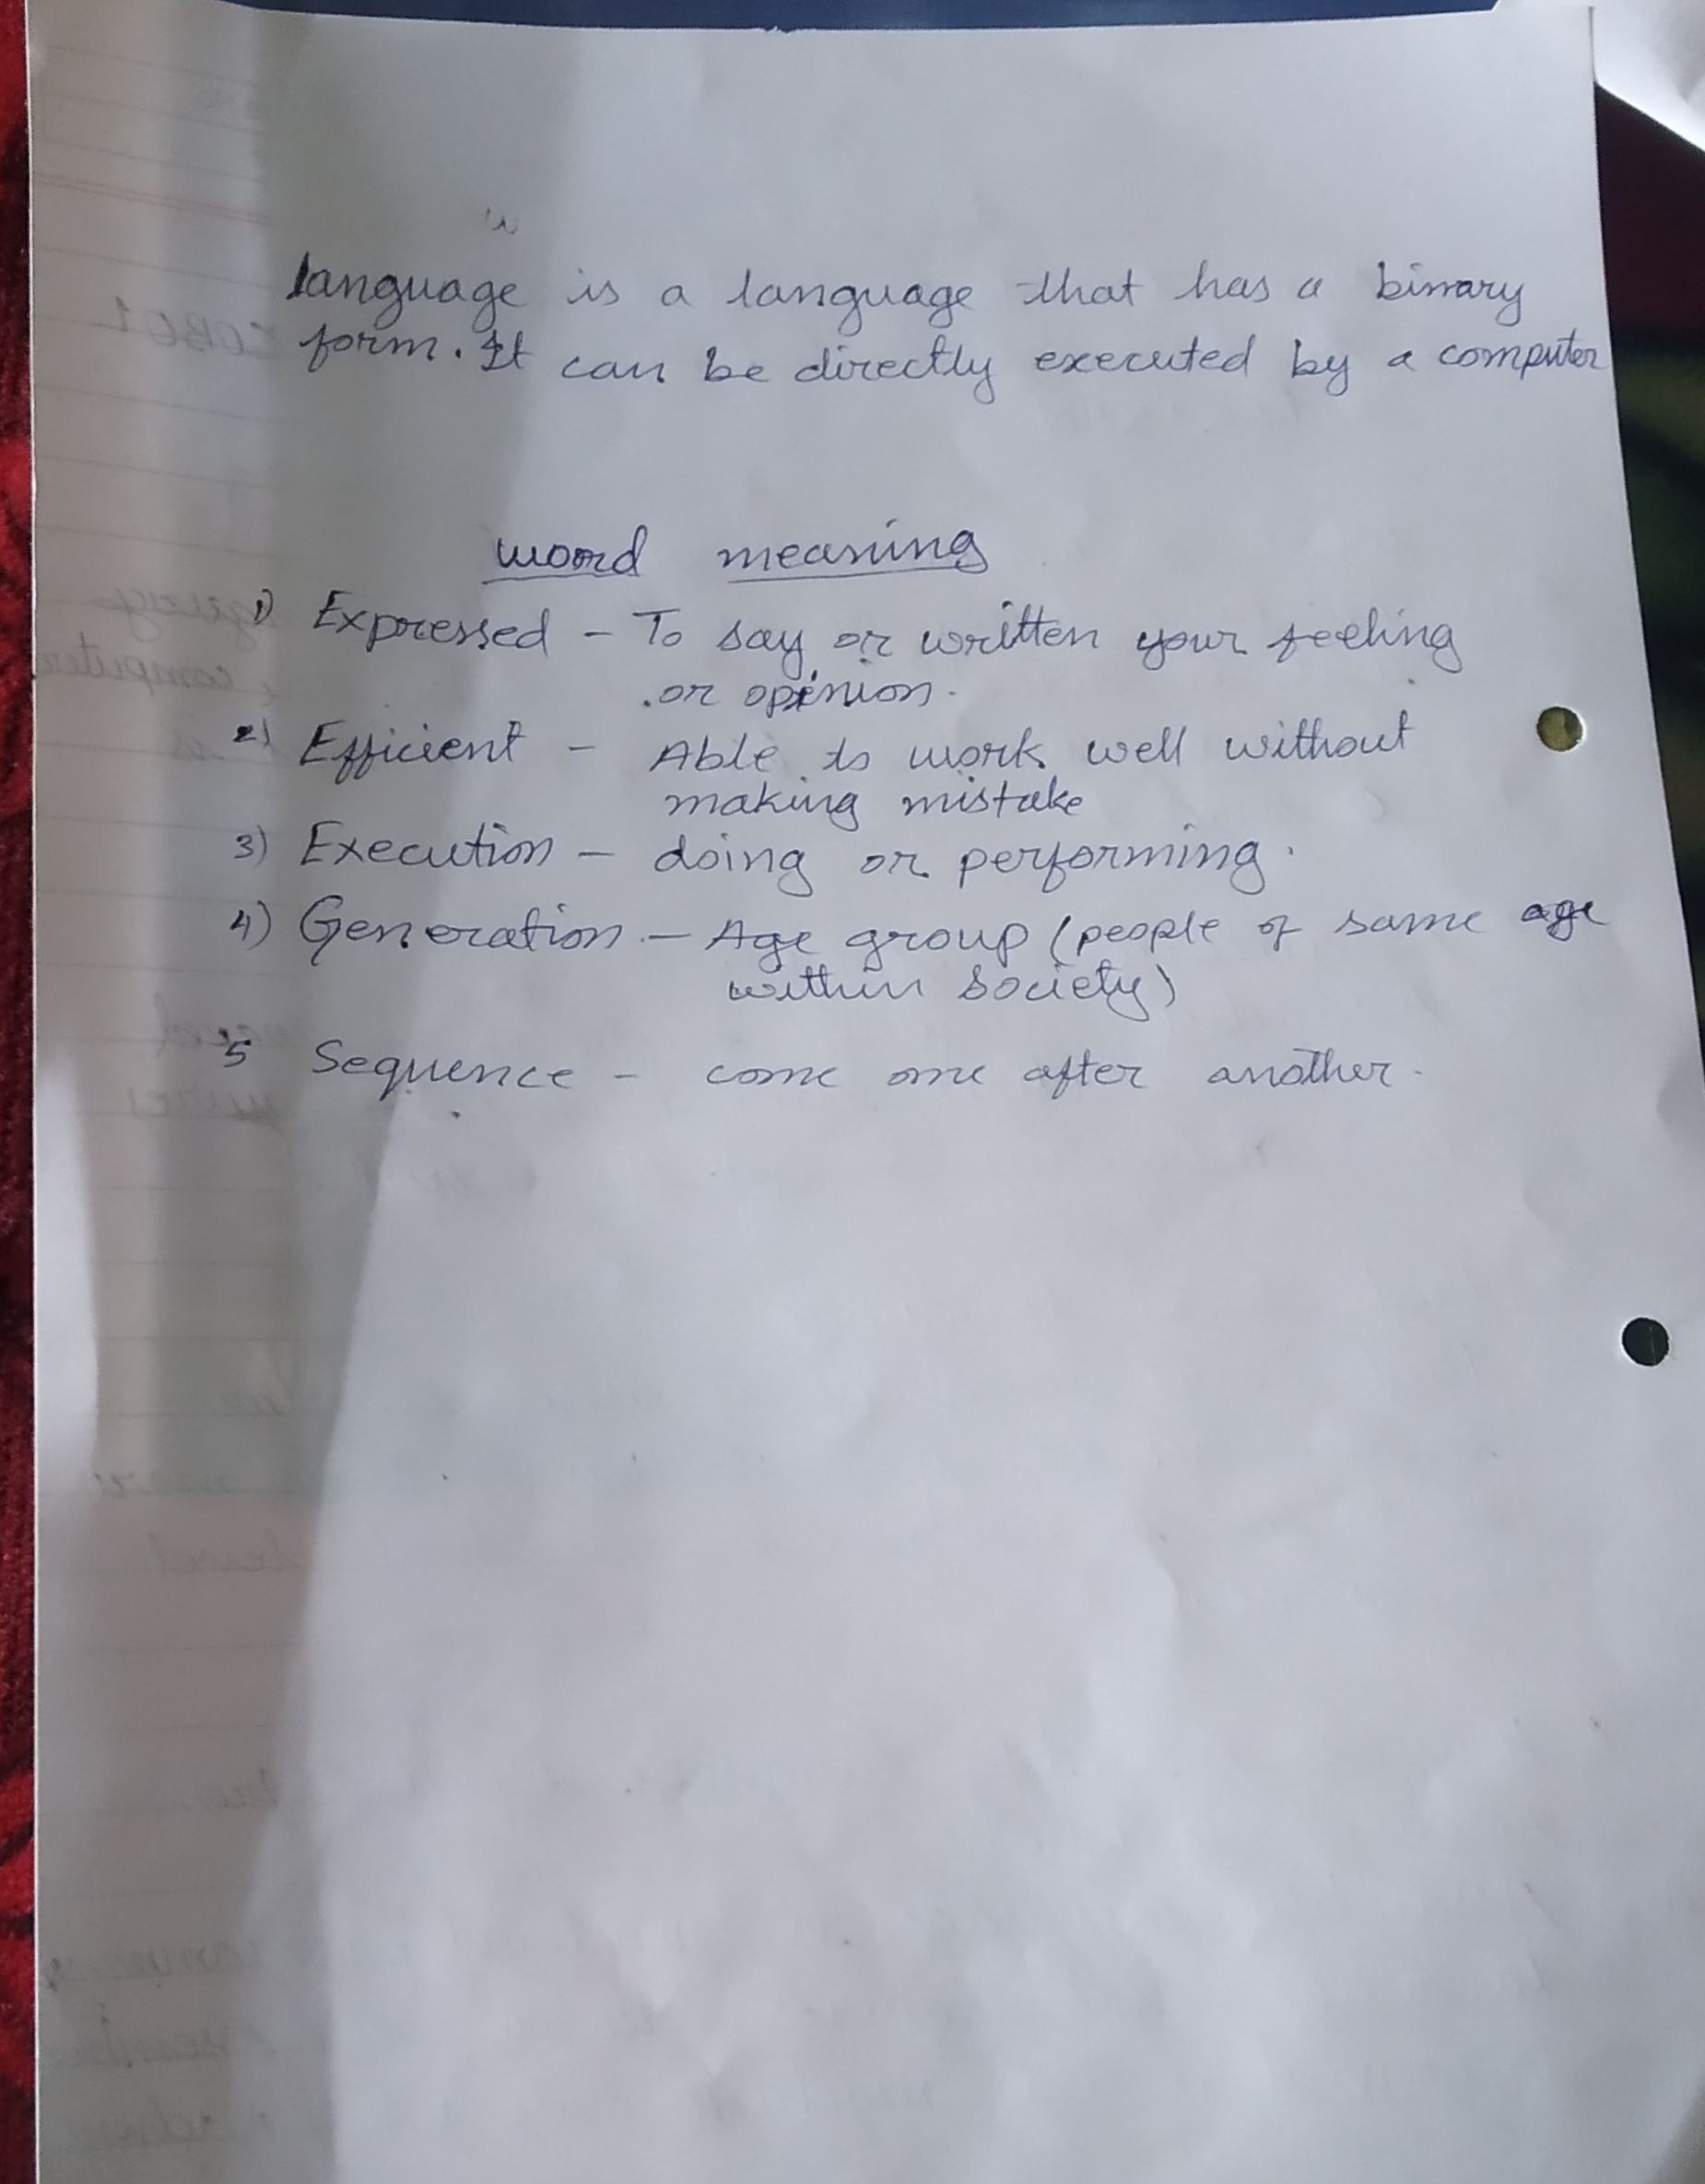 language is a language that has a binary
form. It can be directly executed by a computer
word meaning
1) Expressed - To say or written your feeling
or opinion.
2) Efficient - Able to work well without
making mistake
3) Execution - doing or performing.
4) Generation - Age group (people of same age
within society)
5 Sequence - come one after another.